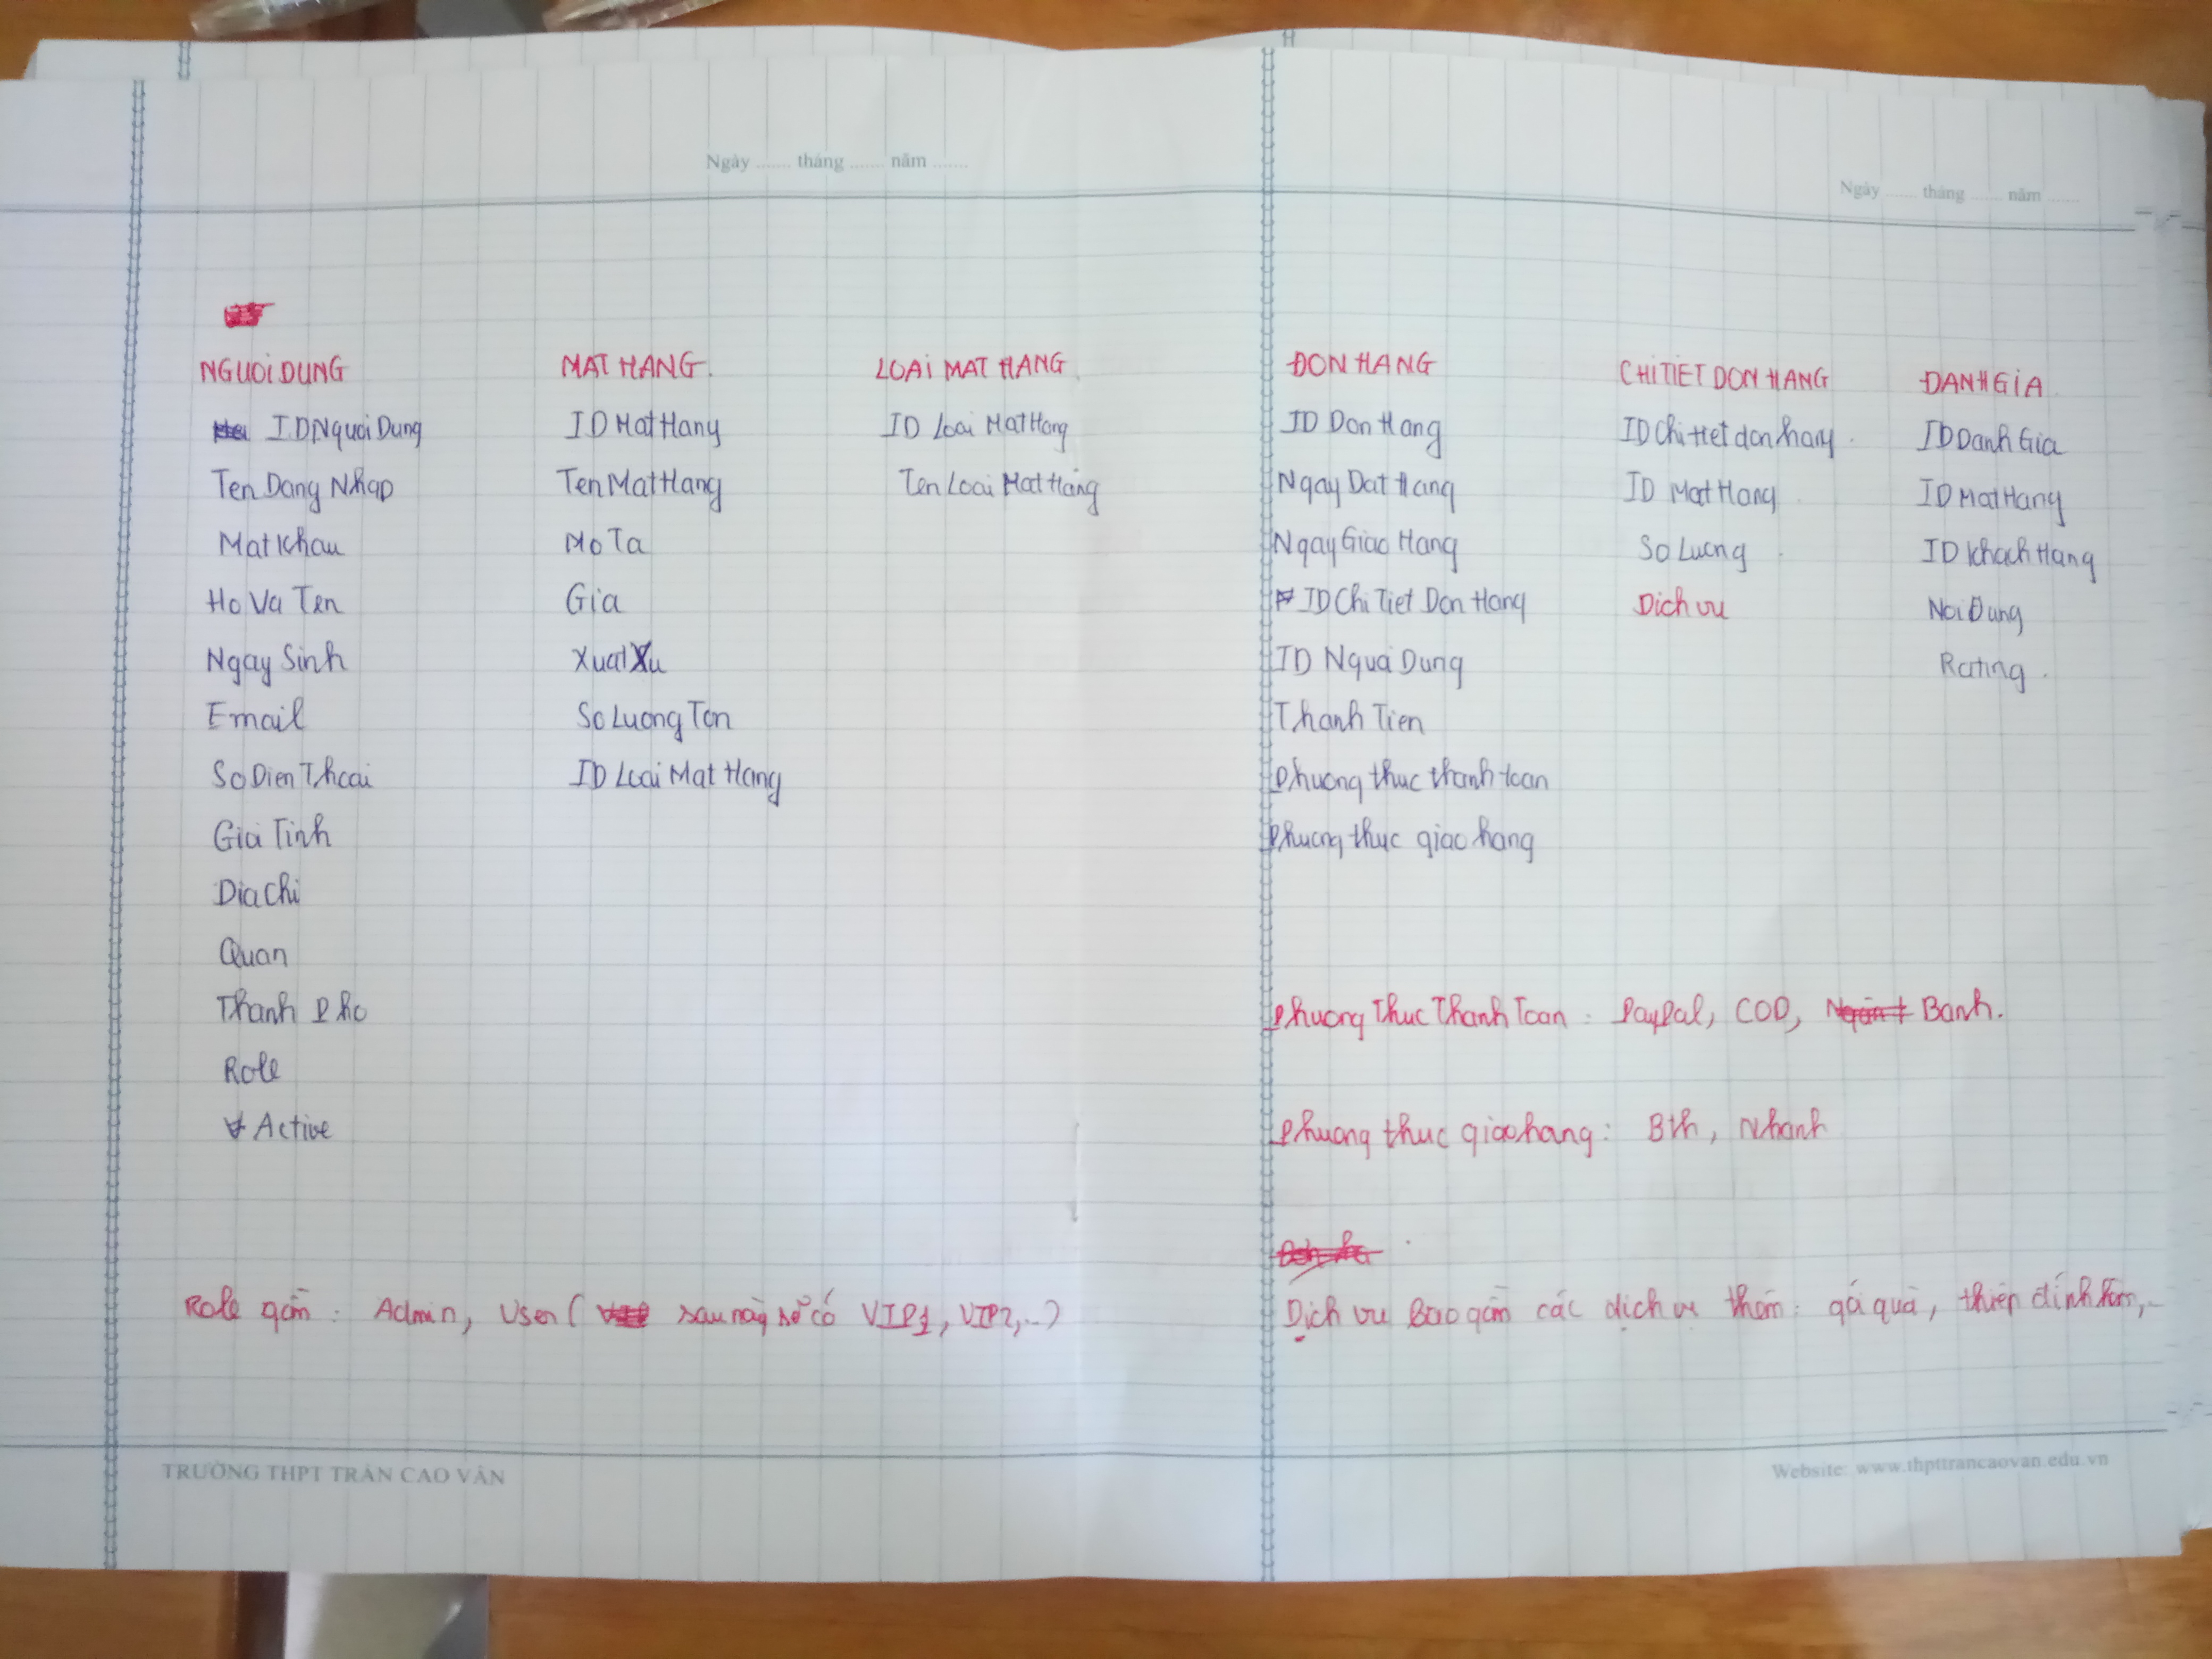 Ngày ....... tháng ....... năm .......
NGUOIDUNG
IDNguoiDung
TenDangNhap
MatKhau
HoVaTen
NgaySinh
Email
SoDienThoai
GioiTinh
DiaChi
Quan
ThanhPho
Role
Active
MATHANG.
IDMatHang
TenMatHang
MoTa
Gia
XuatXu
SoLuongTon
IDLoaiMatHang
LOAIMATHANG
IDLoaiMatHang
TenLoaiMatHang
Role gồm : Admin, User ( sau này sẽ có VIP1, VIP2,...)
TRƯỜNG THPT TRẦN CAO VÂN
Ngày ....... tháng ....... năm .......
ĐONHANG
IDDonHang
NgayDatHang
NgayGiaoHang
IDChiTietDonHang
IDNguoiDung
ThanhTien
Phuongthucthanhtoan
Phuongthucgiaohang
CHITIETDONHANG
IDChitietdonhang
IDMatHang
SoLuong
Dichvu
ĐANHGIA
IDDanhGia
IDMatHang
IDKhachHang
NoiDung
Rating
PhuongThucThanhToan : PayPal, COD, Banh.
Phuongthucgiaohang : Bth, Nhanh
Dịch vu bao gồm các dịch vụ thêm : gói quà, thiệp đính kèm,...
Website: www.thpttrancaovan.edu.vn